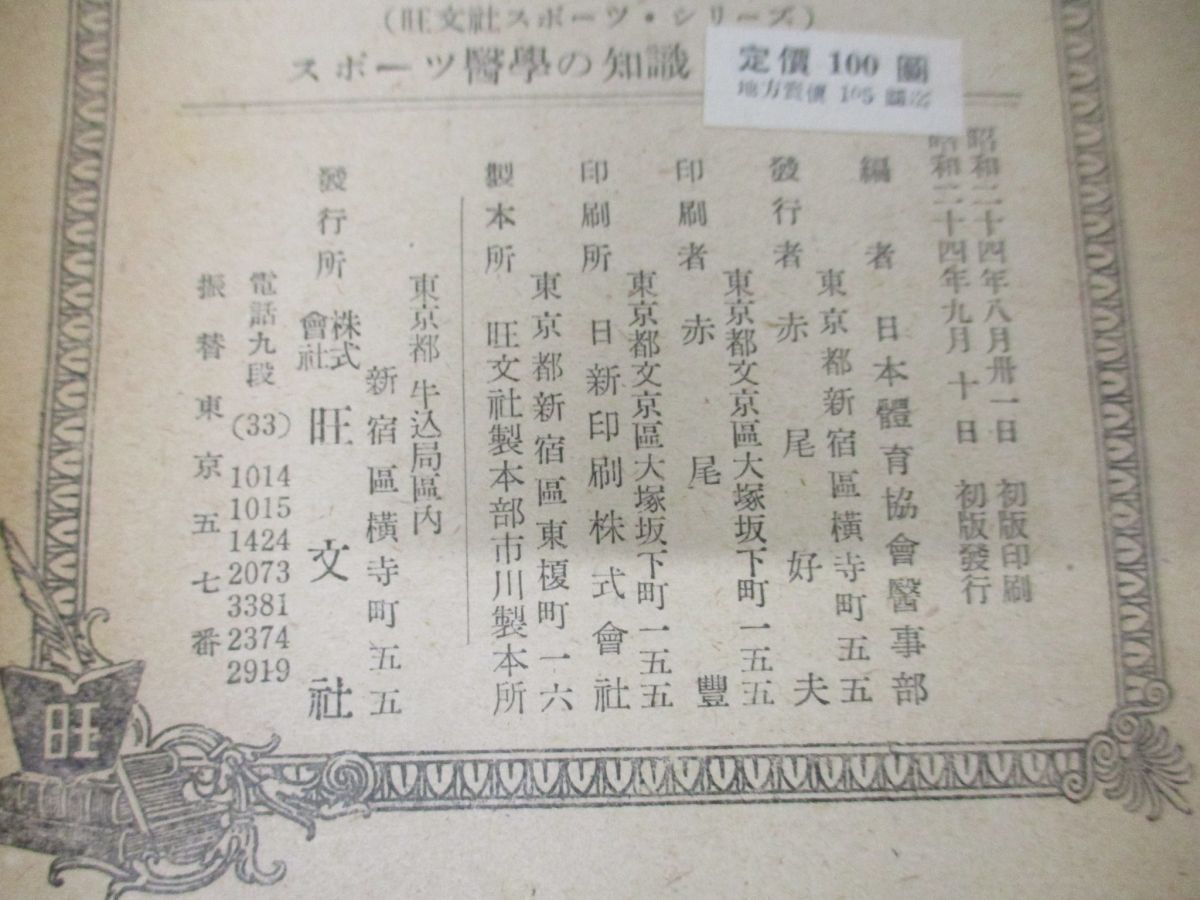 (旺文社スポーツ・シリーズ)
スポーツ醫學の知識
定價 100 圓
地方賣價 105 圓
昭和二十四年八月卅一日 初版印刷
昭和二十四年九月十日 初版發行
編者 日本體育協會醫事部
東京都新宿區橫寺町五五
發行者 赤尾好夫
東京都文京區大塚坂下町一五五
印刷者 赤尾豐
東京都文京區大塚坂下町一五五
印刷所 日新印刷株式會社
東京都新宿區東榎町一六
製本所 旺文社製本部市川製本所
東京都牛込局區內
新宿區橫寺町五五
發行所 株式會社 旺文社
電話九段(33) 1014
1015
1424
2073
3381
2374
2919
振替東京五七番
旺